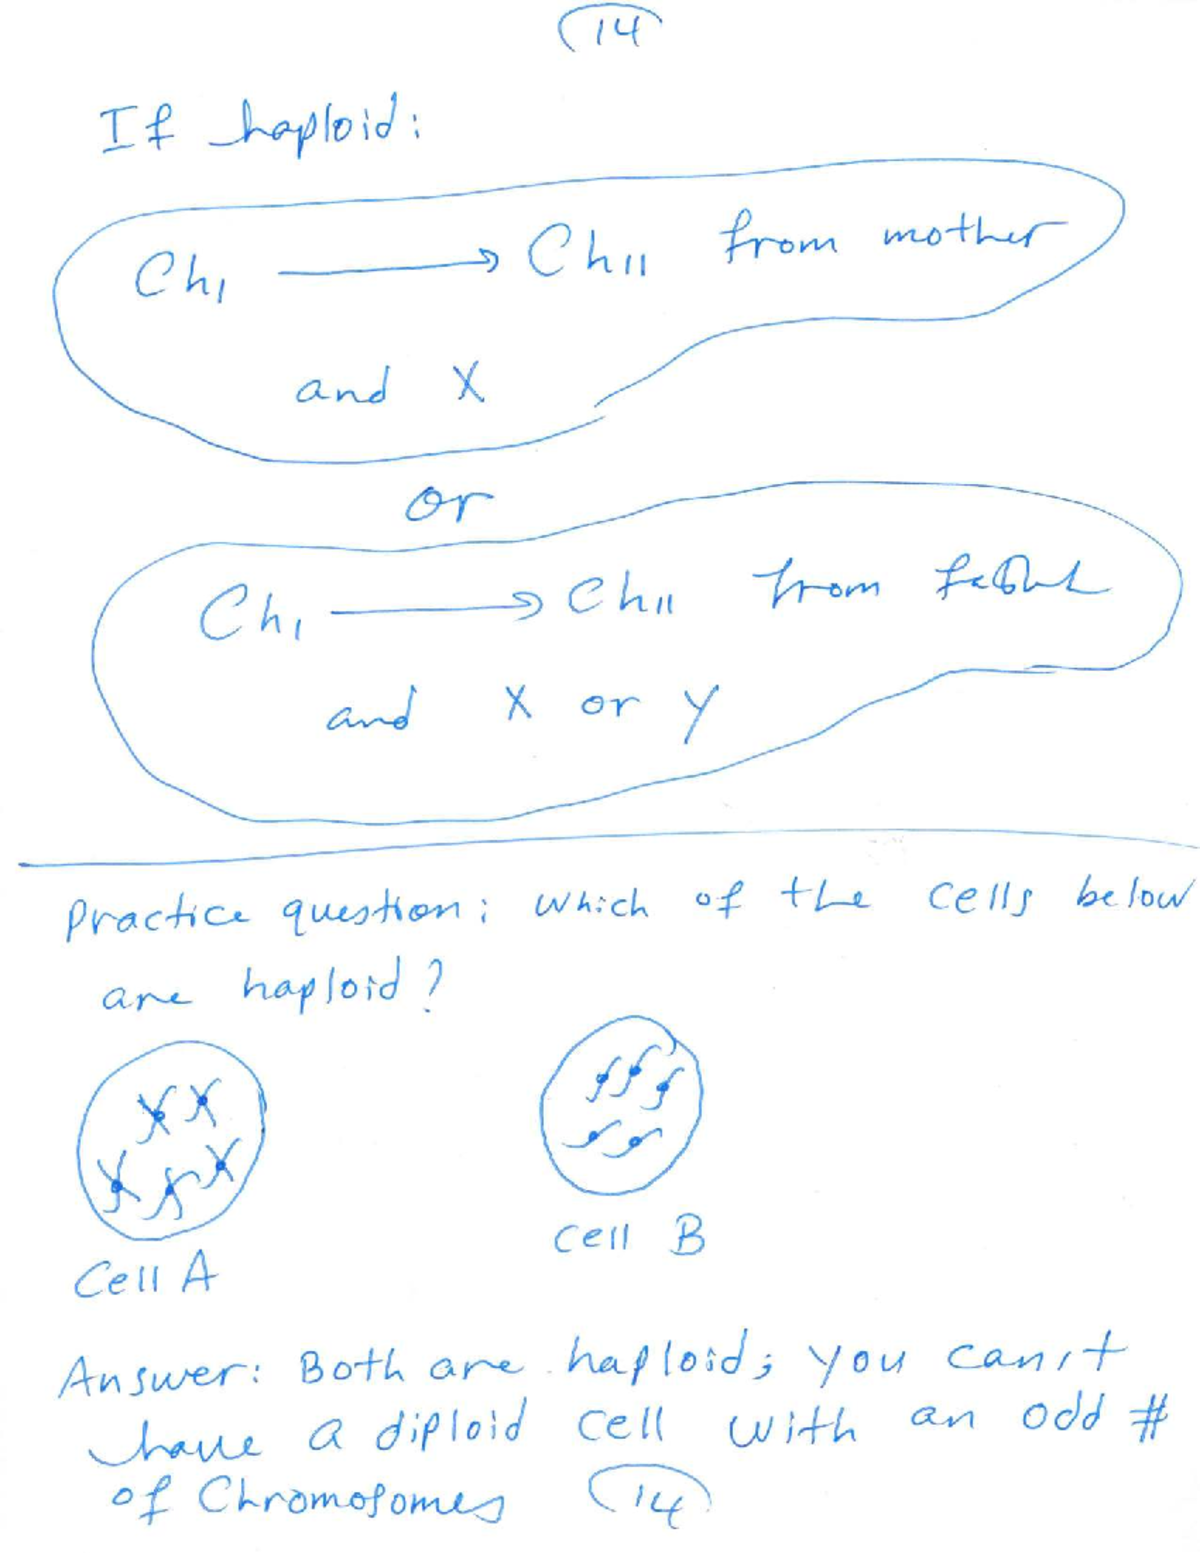 14
If haploid:
Ch1 → Ch11 from mother
and X
or
Ch1 → Ch11 from
and X or Y
Practice question: Which of the cells below
are haploid?
Cell A
Cell B
Answer: Both are haploid; you can't
have a diploid cell with an odd #
of Chromosomes
14